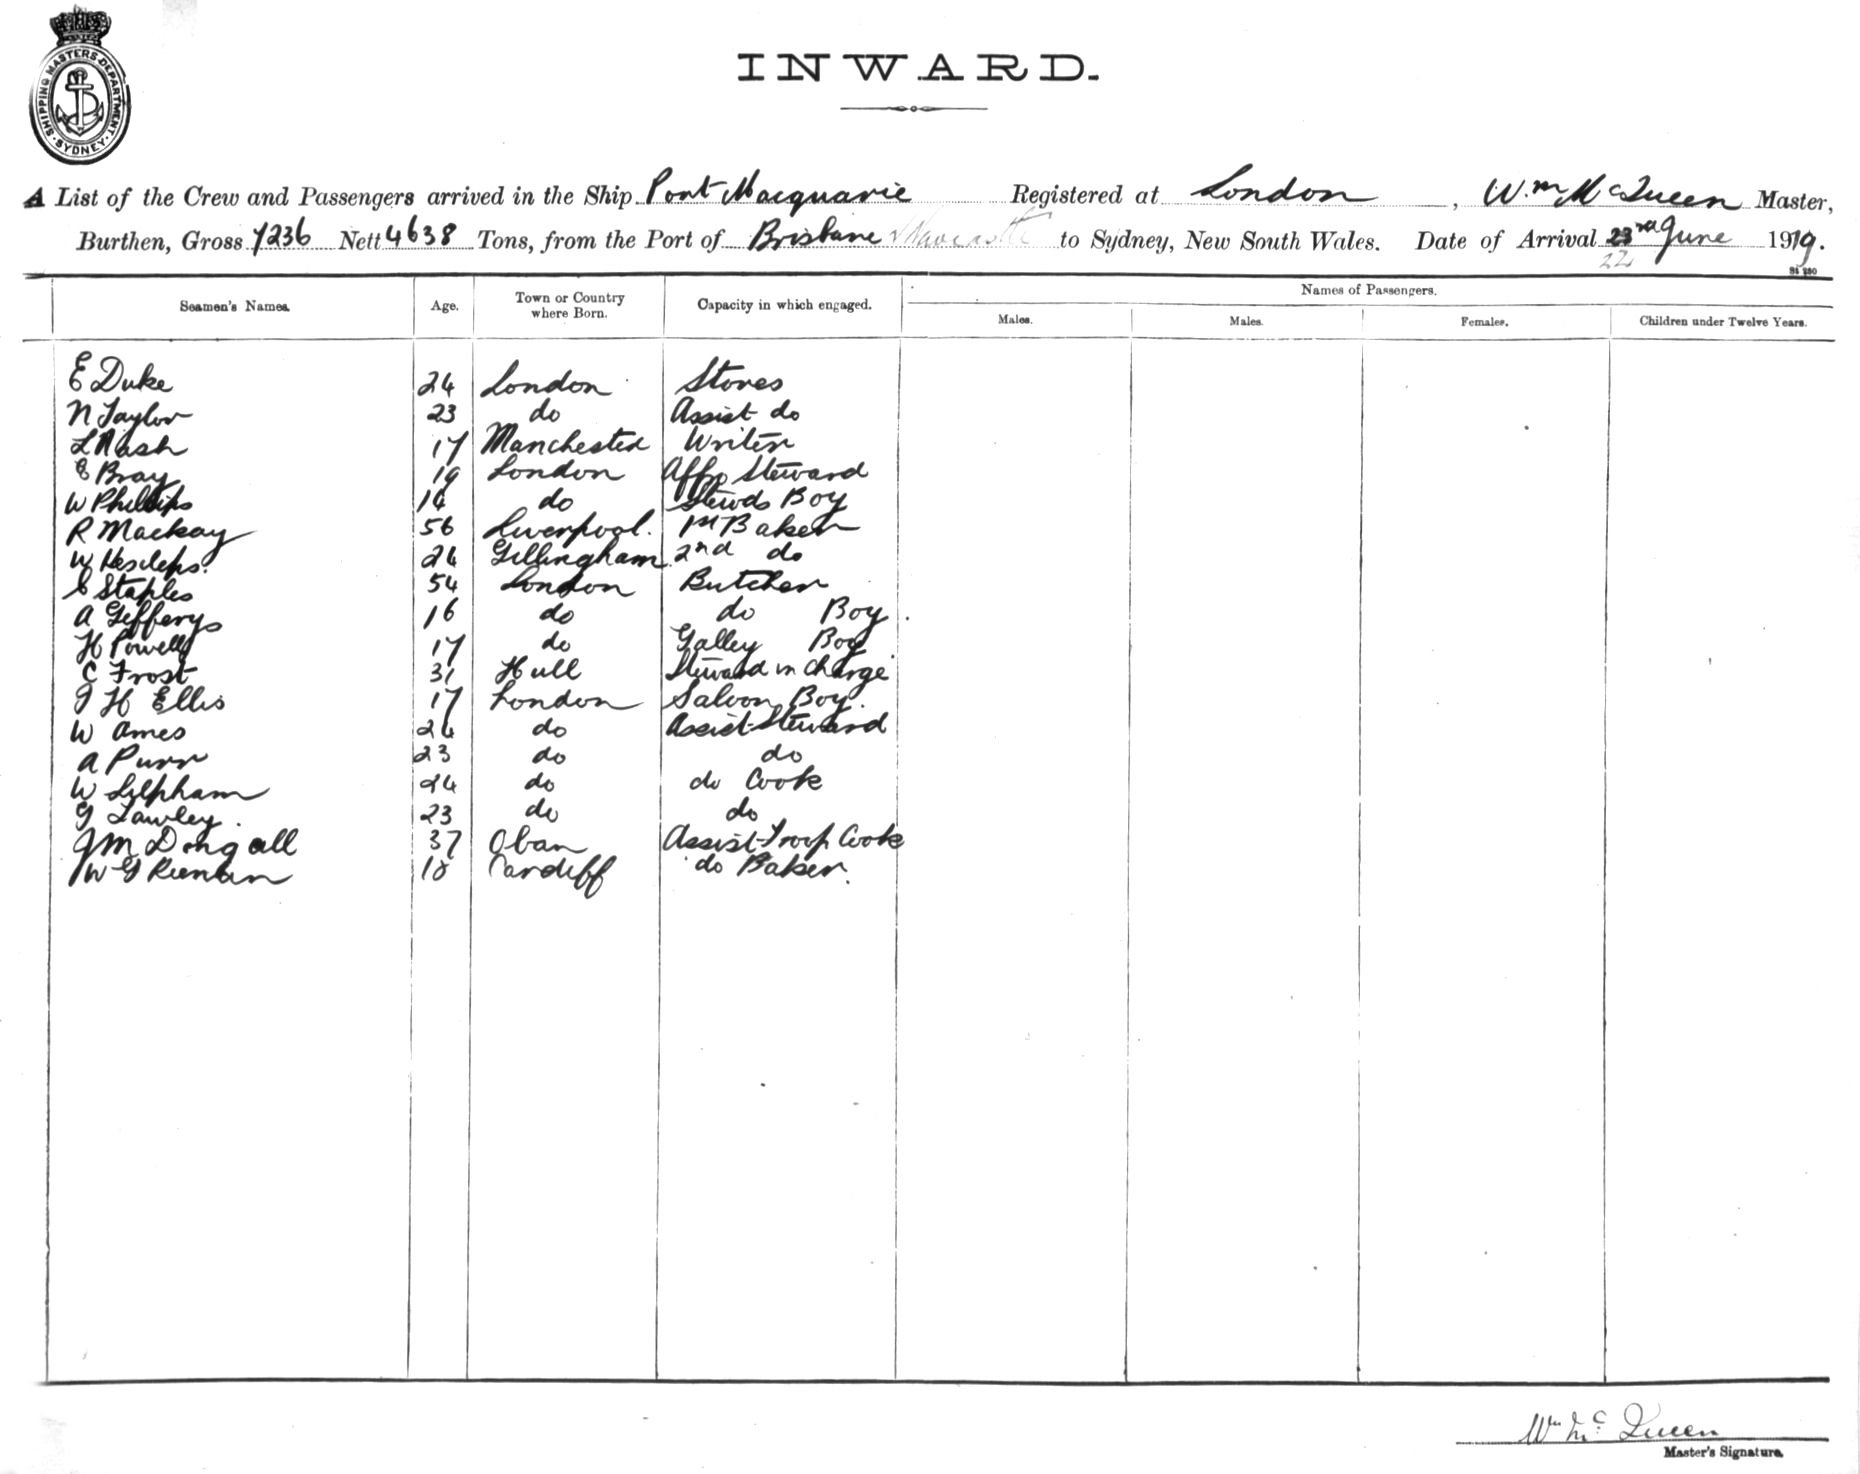 SHIPPING MASTERS DEPARTMENT. SYDNEY
INWARD.
A List of the Crew and Passengers arrived in the Ship Port Macquarie Registered at London, Wm McQueen Master,
Burthen, Gross 7236 Nett 4638 Tons, from the Port of Brisbane & Newcastle to Sydney, New South Wales. Date of Arrival 23rd June 1919.
22
Seamen's Names. Age. Town or Country where Born. Capacity in which engaged. Names of Passengers.
Males. Males. Females. Children under Twelve Years.
E Duke 24 London Stores
N Taylor 23 do Assist do
L Nash 17 Manchester Writer
E Bray 19 London Steward
W Phillips do Stewds Boy
R Mackay 56 Liverpool. 1st Baker
W 24 Gillingham 2nd do
Staples 54 London Butcher
A Jefferys 16 do do Boy
H Powell 17 do Galley Boy
C Frost 31 Hull Steward in Charge
J H Ellis 17 London Saloon Boy.
W Ames 24 do Assist Steward
A Purr 23 do do
W 24 do do Cook
G Lawley. 23 do do
J McDougall 37 Oban Assist Troop Cook
W G 18 Cardiff do Baker.
Wm McQueen
Master's Signature.